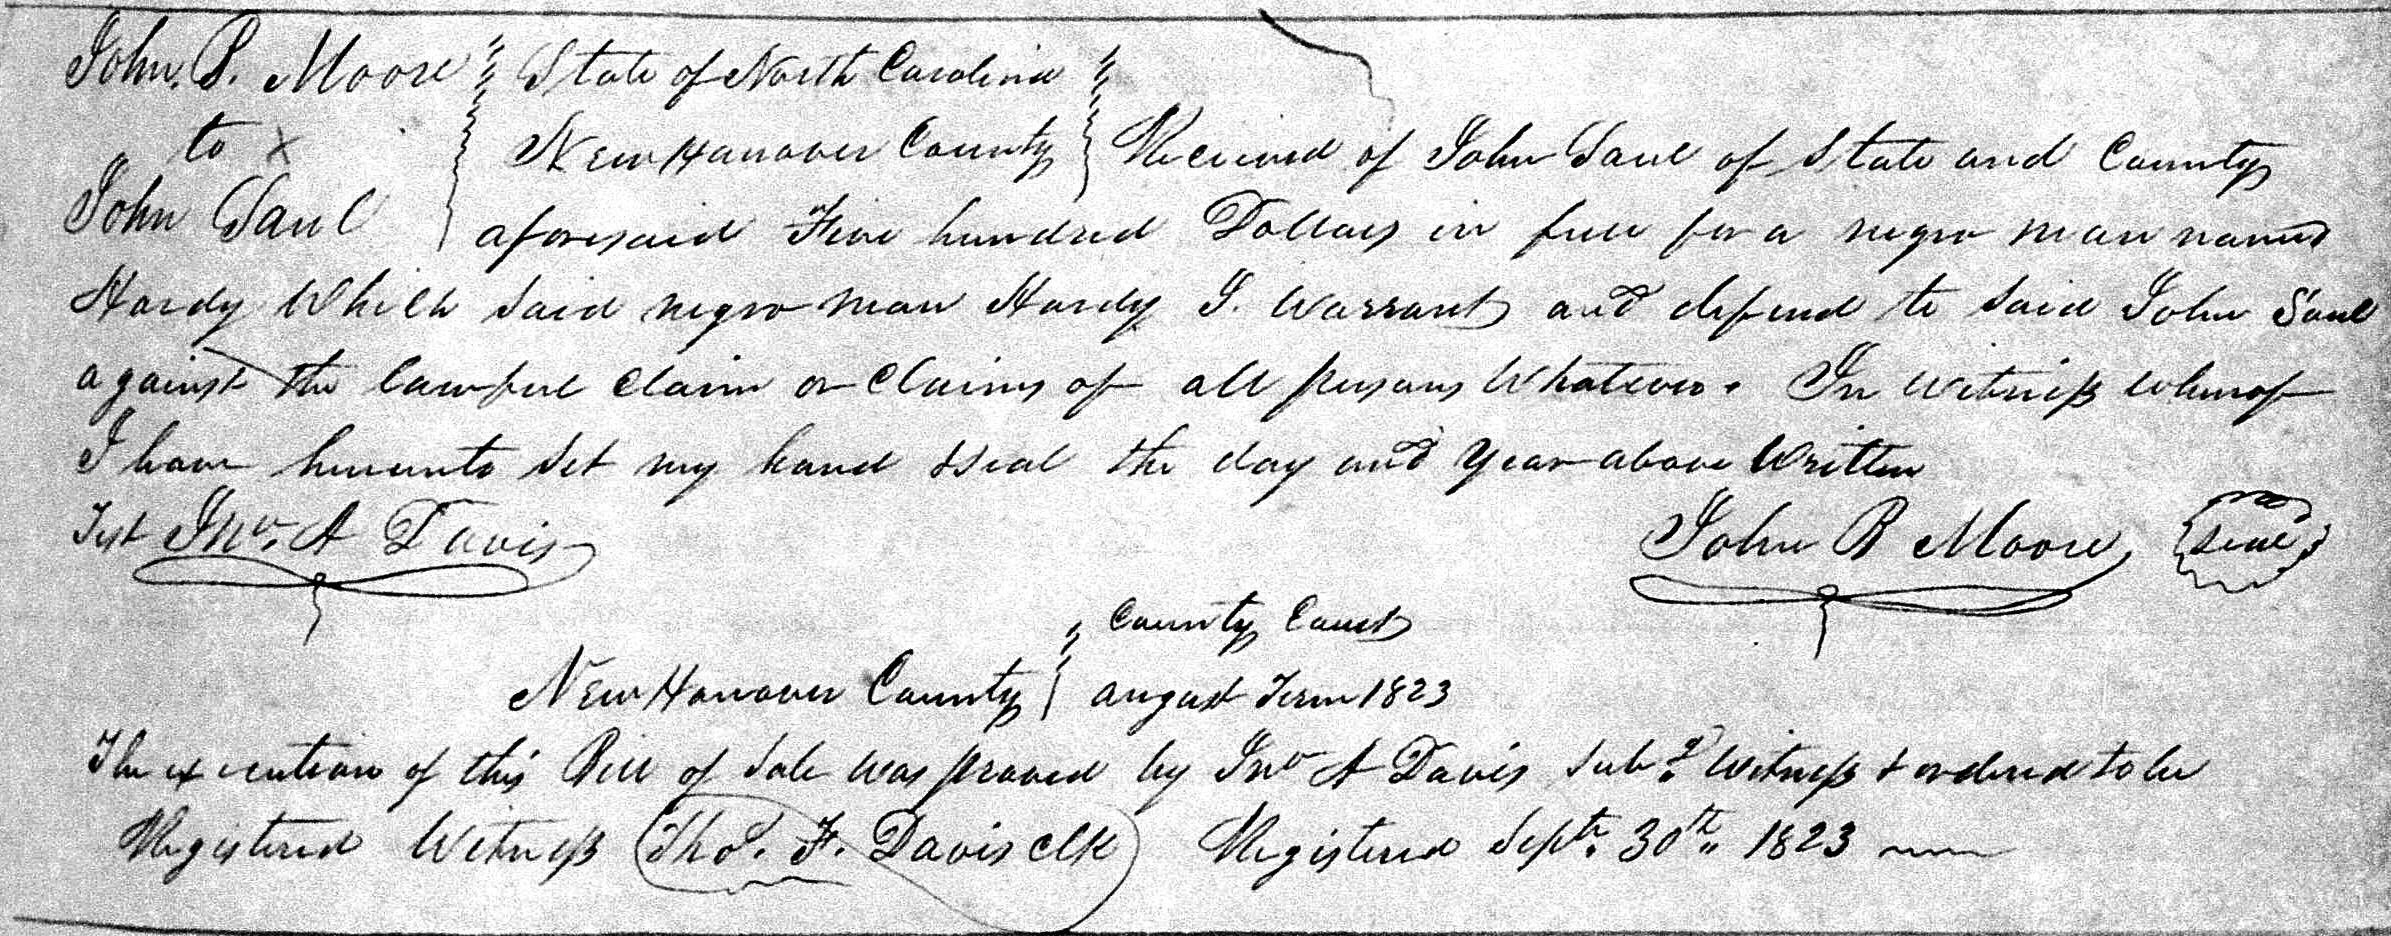 John. B. Moore State of North Carolina
to x New Hanover County Received of John Saul of State and County
John Saul aforesaid Five hundred Dollars in full for a negro man named
Hardy Which said negro man Hardy I. Warrant and defend to said John Saul
against the lawful claim or claims of all persons Whatever. In Witness whereof
I have hereunto set my hand & seal the day and year above Written
Test Jno. A Davis John B Moore Seal
County Court
New Hanover County august Term 1823
The execution of this Bill of Sale was proved by Jno A Davis Subs. Witness & ordered to be
Registered Witness Tho S. F. Davis clk Registered Septr. 30th 1823